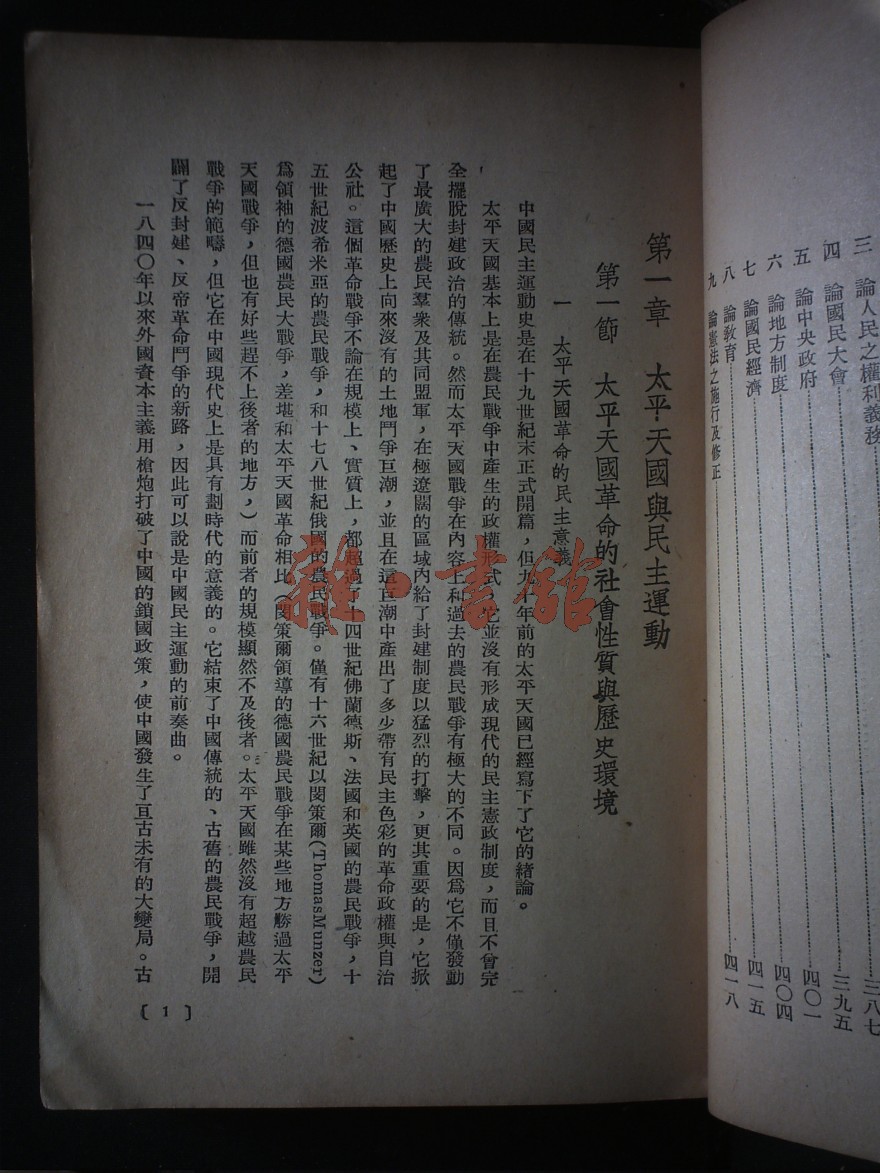 三　論人民之權利義務……三八七
四　論國民大會……三九五
五　論中央政府……四〇一
六　論地方制度……四〇四
七　論國民經濟……四一五
八　論教育……四一八
九　論憲法之施行及修正
第一章　太平天國與民主運動
第一節　太平天國革命的社會性質與歷史環境
一　太平天國革命的民主意義
中國民主運動史是在十九世紀末正式開篇，但九六年前的太平天國已經寫下了它的緒論。
太平天國基本上是在農民戰爭中產生的政權形式，它並沒有形成現代的民主憲政制度，而且不曾完
全擺脫封建政治的傳統。然而太平天國戰爭在內容上和過去的農民戰爭有極大的不同。因爲它不僅發動
了最廣大的農民羣衆及其同盟軍，在極遼闊的區域內給了封建制度以猛烈的打擊，更其重要的是，它掀
起了中國歷史上向來沒有的土地鬥爭巨潮，並且在這巨潮中產出了多少帶有民主色彩的革命政權與自治
公社。這個革命戰爭不論在規模上、實質上，都超過了十四世紀佛蘭德斯、法國和英國的農民戰爭，十
五世紀波希米亞的農民戰爭，和十七八世紀俄國的農民戰爭。僅有十六世紀以閔策爾(Thomas Munzer)
爲領袖的德國農民大戰爭，差堪和太平天國革命相比（閔策爾領導的德國農民戰爭在某些地方勝過太平
天國戰爭，但也有好些趕不上後者的地方，）而前者的規模顯然不及後者。太平天國雖然沒有超越農民
戰爭的範疇，但它在中國現代史上是具有劃時代的意義的。它結束了中國傳統的、古舊的農民戰爭，開
闢了反封建、反帝革命鬥爭的新路，因此可以說是中國民主運動的前奏曲。
一八四〇年以來外國資本主義用槍炮打破了中國的鎖國政策，使中國發生了亙古未有的大變局。古
〔1〕
雜·書館